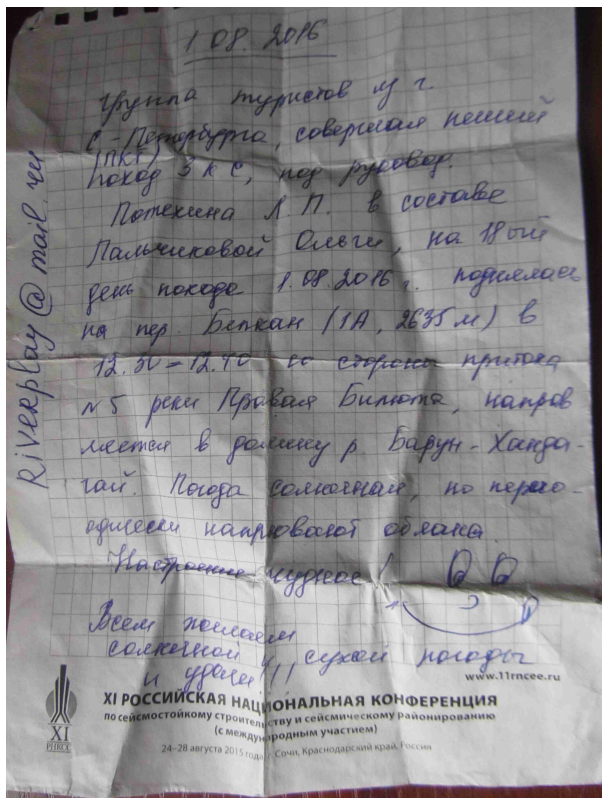 1 08. 2016
Группа туристов из г.
С-Петербурга, совершая пеший
(ПКТ)
поход 3 к с, под руковод.
Потехина Л. П. в составе
Пальчиковой Ольги, на 18ый
день похода 1.08.2016 г. поднялась
на пер. Белкан (1А, 2635 м) в
12.30-12.40 со стороны притока
№5 реки Правая Билюта, направ
ляется в долину р. Барун-Ханда-
гай. Погода солнечная, но перио-
дически наплывают облака.
Настроение чудное!
Всем желаем
солнечной и сухой погоды
и удачи!!!
Riverplay@mail.ru
www.11rncee.ru
XI РОССИЙСКАЯ НАЦИОНАЛЬНАЯ КОНФЕРЕНЦИЯ
по сейсмостойкому строительству и сейсмическому районированию
(с международным участием)
24–28 августа 2015 года, г. Сочи, Краснодарский край, Россия
XI
РНКСС